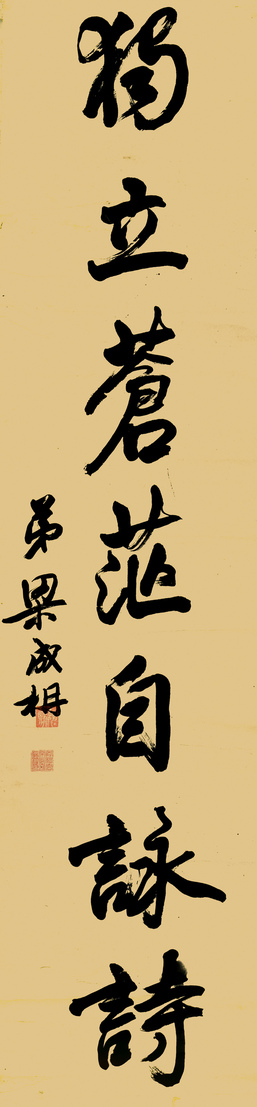 獨立蒼茫自詠詩
弟梁成枏